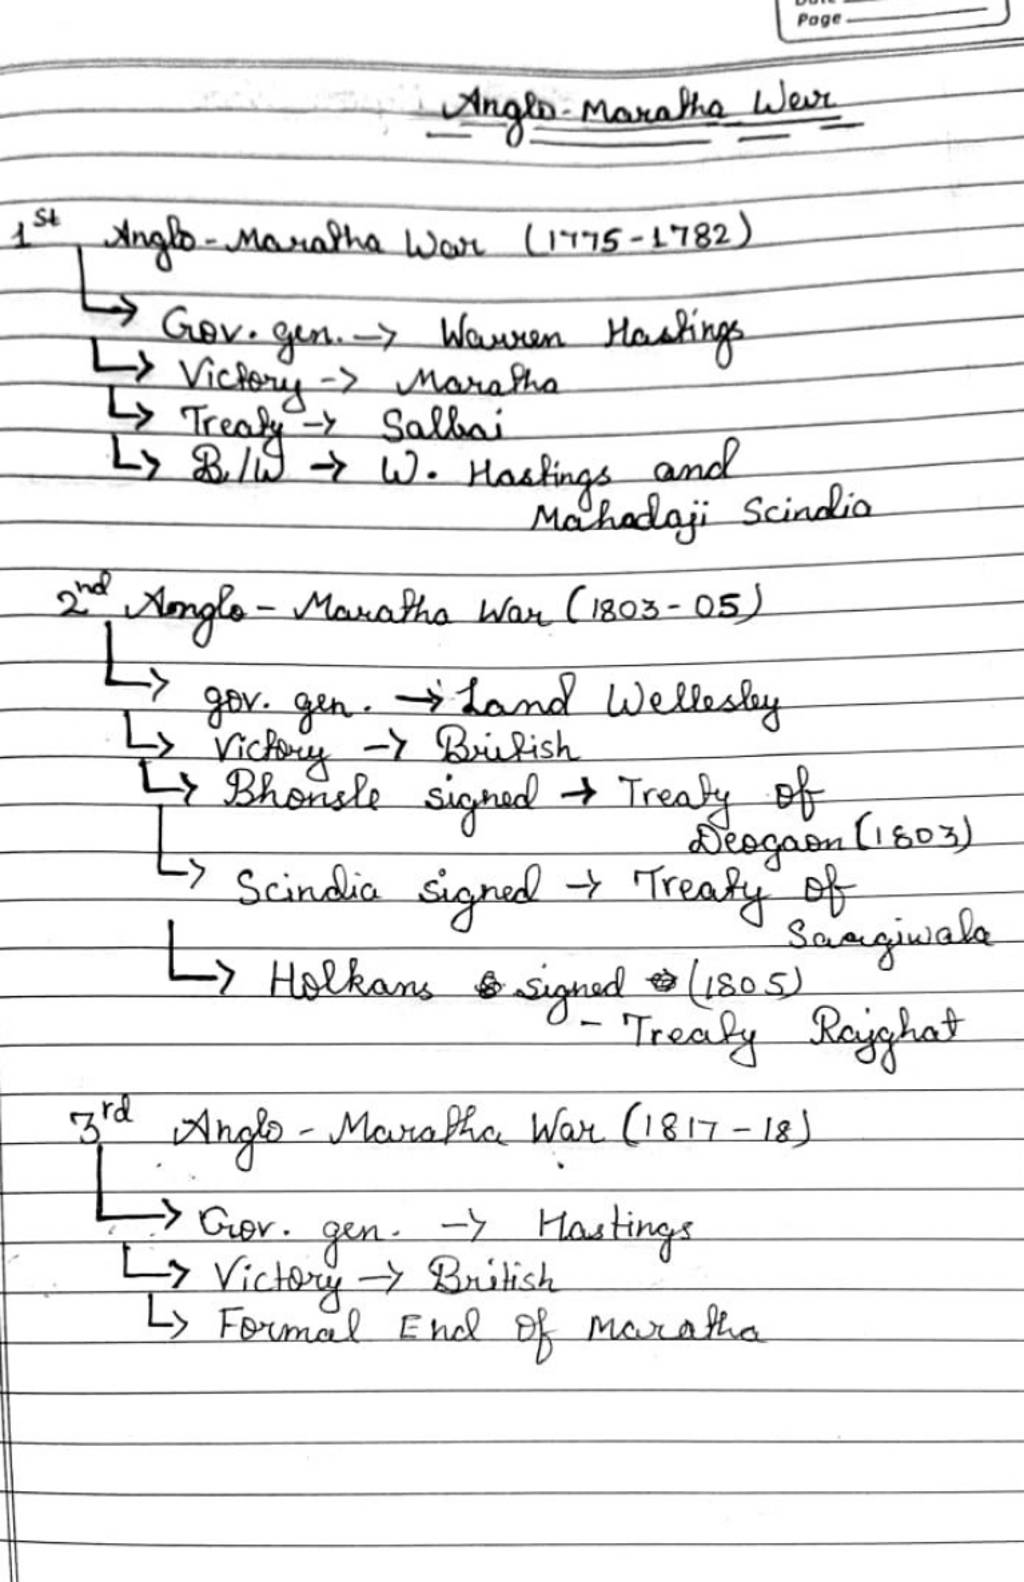 Page
Anglo-Maratha War
1st Anglo-Maratha War (1775-1782)
Gov. gen. -> Warren Hastings
Victory -> Maratha
Treaty -> Salbai
B/W -> W. Hastings and
Mahadaji Scindia
2nd Anglo-Maratha War (1803-05)
gov. gen. -> Land Wellesley
Victory -> British
Bhonsle signed -> Treaty of
Deogaon (1803)
Scindia signed -> Treaty of
Sargiwala
Holkans signed (1805)
- Treaty Rajghat
3rd Anglo-Maratha War (1817-18)
Gov. gen. -> Hastings
Victory -> British
Formal End of Maratha